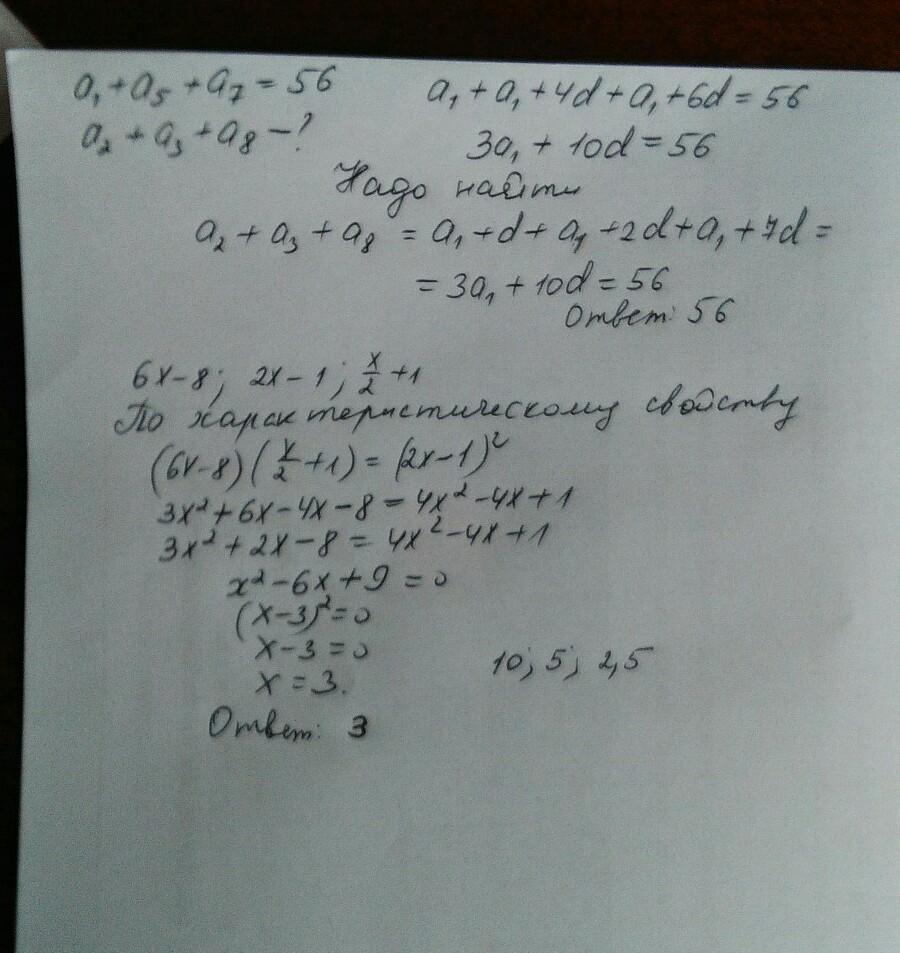 a₁ + a₅ + a₇ = 56
a₂ + a₃ + a₈ – ?
a₁ + a₁ + 4d + a₁ + 6d = 56
3a₁ + 10d = 56
Надо найти
a₂ + a₃ + a₈ = a₁ + d + a₁ + 2d + a₁ + 7d =
= 3a₁ + 10d = 56
Ответ: 56
6x – 8; 2x – 1; x/2 + 1
По характеристическому свойству
(6x – 8)(x/2 + 1) = (2x – 1)²
3x² + 6x – 4x – 8 = 4x² – 4x + 1
3x² + 2x – 8 = 4x² – 4x + 1
x² – 6x + 9 = 0
(x – 3)² = 0
x – 3 = 0
x = 3.
10; 5; 2,5
Ответ: 3